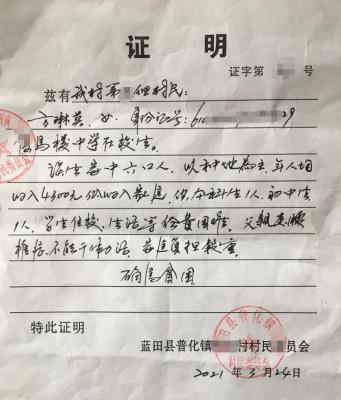 证 明
证字第 号
兹有我村第 组村民：
方琳英，女，身份证号：610 29
马楼中学在校生。
该生家中六口人，以种地为主，年人均
收入4300元低收入家庭，供 学生1人，初中生
1人，学生住校、生活等经费困难，父亲患腰
椎 不能干 活，家庭负担较重，
确属贫困
特此证明
蓝田县普化镇 村村民委员会
2021 年 3 月 24 日